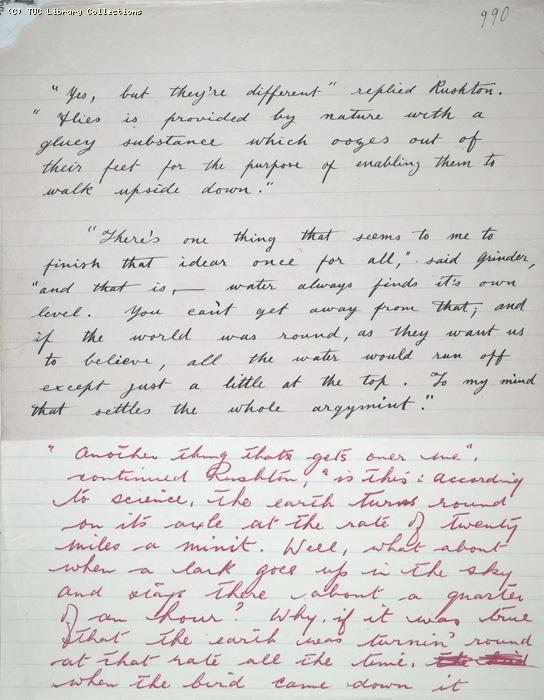 (C) TUC Library Collections
990
"Yes, but they're different" replied Rushton.
"Flies is provided by nature with a
gluey substance which oozes out of
their feet for the purpose of enabling them to
walk upside down."
"There's one thing that seems to me to
finish that idear once for all," said Grinder,
"and that is, — water always finds it's own
level. You can't get away from that; and
if the world was round, as they want us
to believe, all the water would run off
except just a little at the top. To my mind
that settles the whole argymint."
"Another thing thats gets over me",
continued Rushton, "is this: According
to science, the earth turns round
on its axle at the rate of twenty
miles a minit. Well, what about
when a lark goes up in the sky
and stays there about a quarter
of an hour? Why, if it was true
that the earth was turnin' round
at that rate all the time, the bird
when the bird came down it